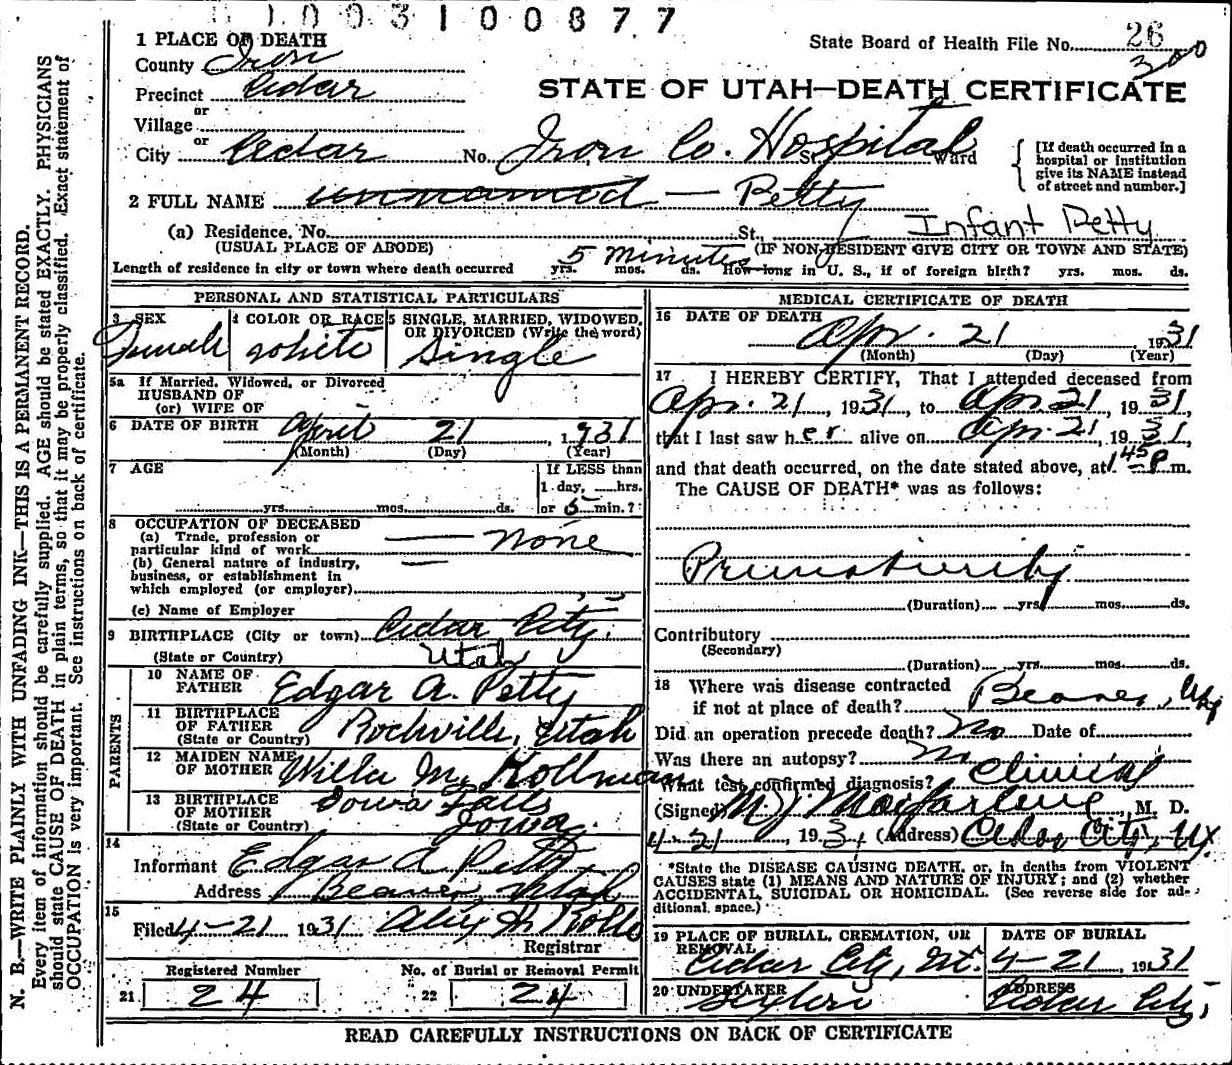 1003100877
1 PLACE OF DEATH
State Board of Health File No. 26
300
County Iron
Precinct Cedar
STATE OF UTAH—DEATH CERTIFICATE
or
Village
or
City Cedar No. Iron Co. Hospital St. Ward
[If death occurred in a hospital or institution give its NAME instead of street and number.]
2 FULL NAME unnamed — Petty
Infant Petty
(a) Residence. No. St.,
(USUAL PLACE OF ABODE) (IF NON-RESIDENT GIVE CITY OR TOWN AND STATE)
Length of residence in city or town where death occurred yrs. mos. ds. 5 minutes How long in U. S., if of foreign birth? yrs. mos. ds.
PERSONAL AND STATISTICAL PARTICULARS
3 SEX Female
4 COLOR OR RACE white
5 SINGLE, MARRIED, WIDOWED, OR DIVORCED (Write the word) Single
5a If Married, Widowed, or Divorced
HUSBAND OF
(or) WIFE OF
6 DATE OF BIRTH April 21, 1931
(Month) (Day) (Year)
7 AGE yrs. mos. ds.
If LESS than
1 day, hrs.
or 5 min.?
8 OCCUPATION OF DECEASED
(a) Trade, profession or
particular kind of work — none
(b) General nature of industry,
business, or establishment in
which employed (or employer) —
(c) Name of Employer
9 BIRTHPLACE (City or town) Cedar City,
(State or Country) Utah
PARENTS
10 NAME OF FATHER Edgar A. Petty
11 BIRTHPLACE OF FATHER (State or Country) Rockville, Utah
12 MAIDEN NAME OF MOTHER Willa M. Hollman
13 BIRTHPLACE OF MOTHER (State or Country) Iowa Falls Iowa
14
Informant Edgar A. Petty
Address Beaver Utah
15
Filed 4-21 1931
Registrar
Registered Number
No. of Burial or Removal Permit
21 24
22 24
MEDICAL CERTIFICATE OF DEATH
16 DATE OF DEATH
Apr. 21 1931
(Month) (Day) (Year)
17 I HEREBY CERTIFY, That I attended deceased from
Apr. 21, 1931, to Apr 21, 1931,
that I last saw her alive on Apr 21, 1931,
and that death occurred, on the date stated above, at 1 45 P m.
The CAUSE OF DEATH* was as follows:
Prematurity
(Duration) yrs. mos. ds.
Contributory
(Secondary)
(Duration) yrs. mos. ds.
18 Where was disease contracted
if not at place of death? Beaver,
Did an operation precede death? No Date of
Was there an autopsy? No
What test confirmed diagnosis? Clinical
(Signed) M. J. Macfarlane, M. D.
4-21, 1931 (Address) Cedar City, Ut.
*State the DISEASE CAUSING DEATH, or, in deaths from VIOLENT
CAUSES state (1) MEANS AND NATURE OF INJURY; and (2) whether
ACCIDENTAL, SUICIDAL OR HOMICIDAL. (See reverse side for ad-
ditional space.)
19 PLACE OF BURIAL, CREMATION, OR REMOVAL
Cedar City, Ut.
DATE OF BURIAL
4-21, 1931
20 UNDERTAKER
ADDRESS
Cedar City,
READ CAREFULLY INSTRUCTIONS ON BACK OF CERTIFICATE
N. B.—WRITE PLAINLY WITH UNFADING INK—THIS IS A PERMANENT RECORD.
Every item of information should be carefully supplied. AGE should be stated EXACTLY. PHYSICIANS
should state CAUSE OF DEATH in plain terms, so that it may be properly classified. Exact statement of
OCCUPATION is very important. See instructions on back of certificate.